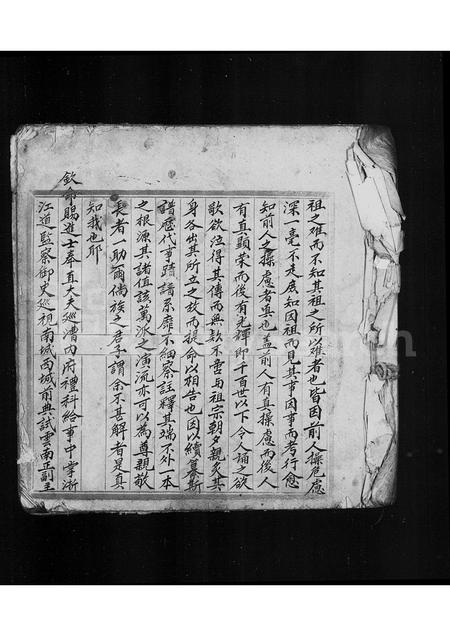 祖之难而不知其祖之所以难者也皆因前人操危慮
深一毫不走底知因祖而見其事因事而考行愈
知前人之操慮者真也盖前人有真操慮而後人
有真顯荣而後有光輝即千百世以下令人誦之欲
歌欲泣得其傳而無歎不啻與祖宗朝夕親炙其
身各出其所立之故而提命以相告也因以續纂斯
譜歷代事蹟譜系靡不細察註釋其端不外一本
之根源其諸值該萬派之演流亦可以為尊親敬
長者一助爾倘族之君子謂余不甚解者是真
知我也耶
欽命賜進士奉直大夫巡漕内府禮科給事中掌浙
江道監察御史巡視南城西城前典試雲南正副主